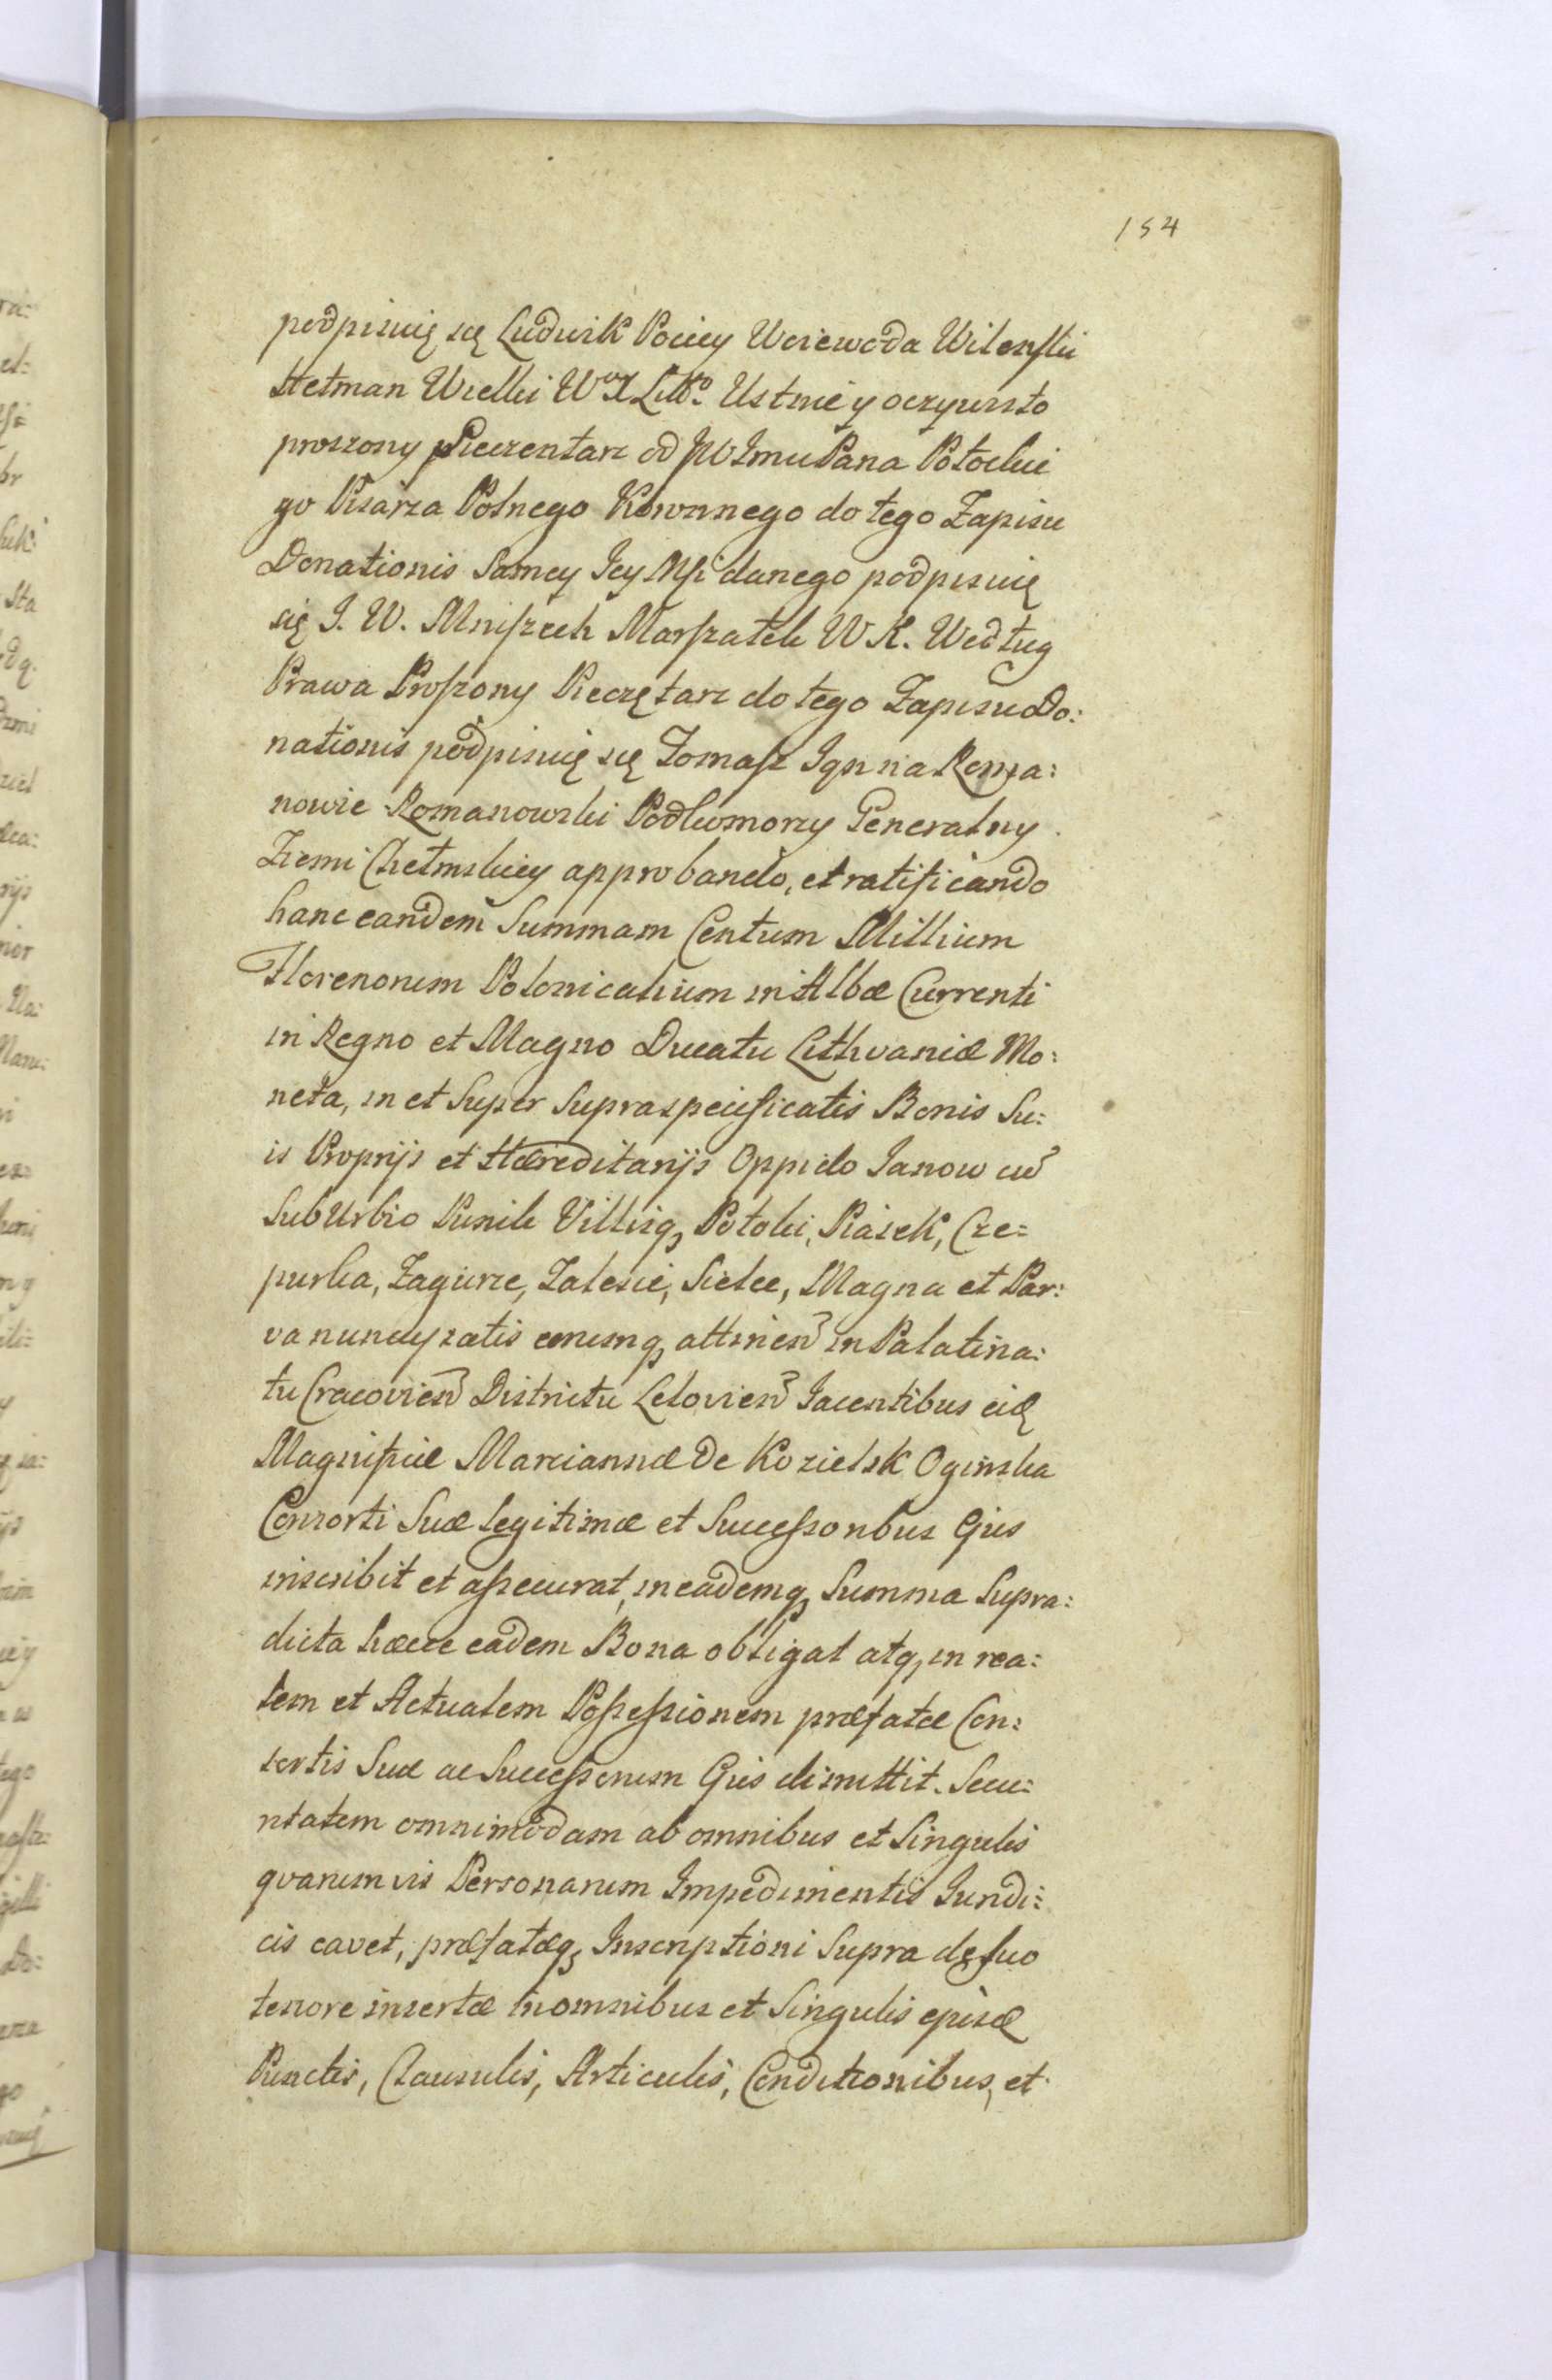 154
podpisuię się Ludwik Pociey Woiewoda Wilenski
Hetman Wielki W X Litt° Ustnie y oczywisto
proszony Pieczentarz od JW Jmu Pana Potockie
go Pisarza Polnego Koronnego do tego Zapisu
Donationis Samey Jey Msi danego podpisuię
się J. W. Mniszech Marszałek W K. Według
Prawa Proszony Pieczętarz do tego Zapisu Do:
nationis podpisuię się Tomasz Jgn na Roma:
nowie Romanowski Podkomorzy Generalny
Ziemi Chełmskiey approbando, et ratificando
hanc eandem Summam Centum Millium
Florenorum Polonicalium in Albæ Currenti
in Regno et Magno Ducatu Lithvaniæ Mo:
neta, in et Super Supraspecificatis Bonis Su:
is Proprijs et Hæreditarijs Oppido Janow cũ
SubUrbio Ponik Villisq, Potoki, Piasek, Cze=
purka, Zagurze, Zalesie, Sielce, Magna et Par:
va nuncupatis eorumq, attinen̄ in Palatina:
tu Cracovien̄ Districtu Lelovien̄ Jacentibus eidę
Magnificæ Marciannæ De Kozielsk Oginska
Consorti Suæ legitimæ et Successoribus Ejus
inscribit et assecurat, in eademq, Summa Supra:
dicta hæcce eadem Bona obligat atq, in rea:
lem et Actualem Possessionem præfatæ Con:
sortis Suæ ac Successorum Ejus dimittit. Secu:
ritatem omnimodam ab omnibus et Singulis
qvarumvis Personarum Impedimentis Juridi:
cis cavet, præfatæq, Inscriptioni Supra de suo
tenore insertæ in omnibus et Singulis ejus
Punctis, Clausulis, Articulis, Conditionibus, et